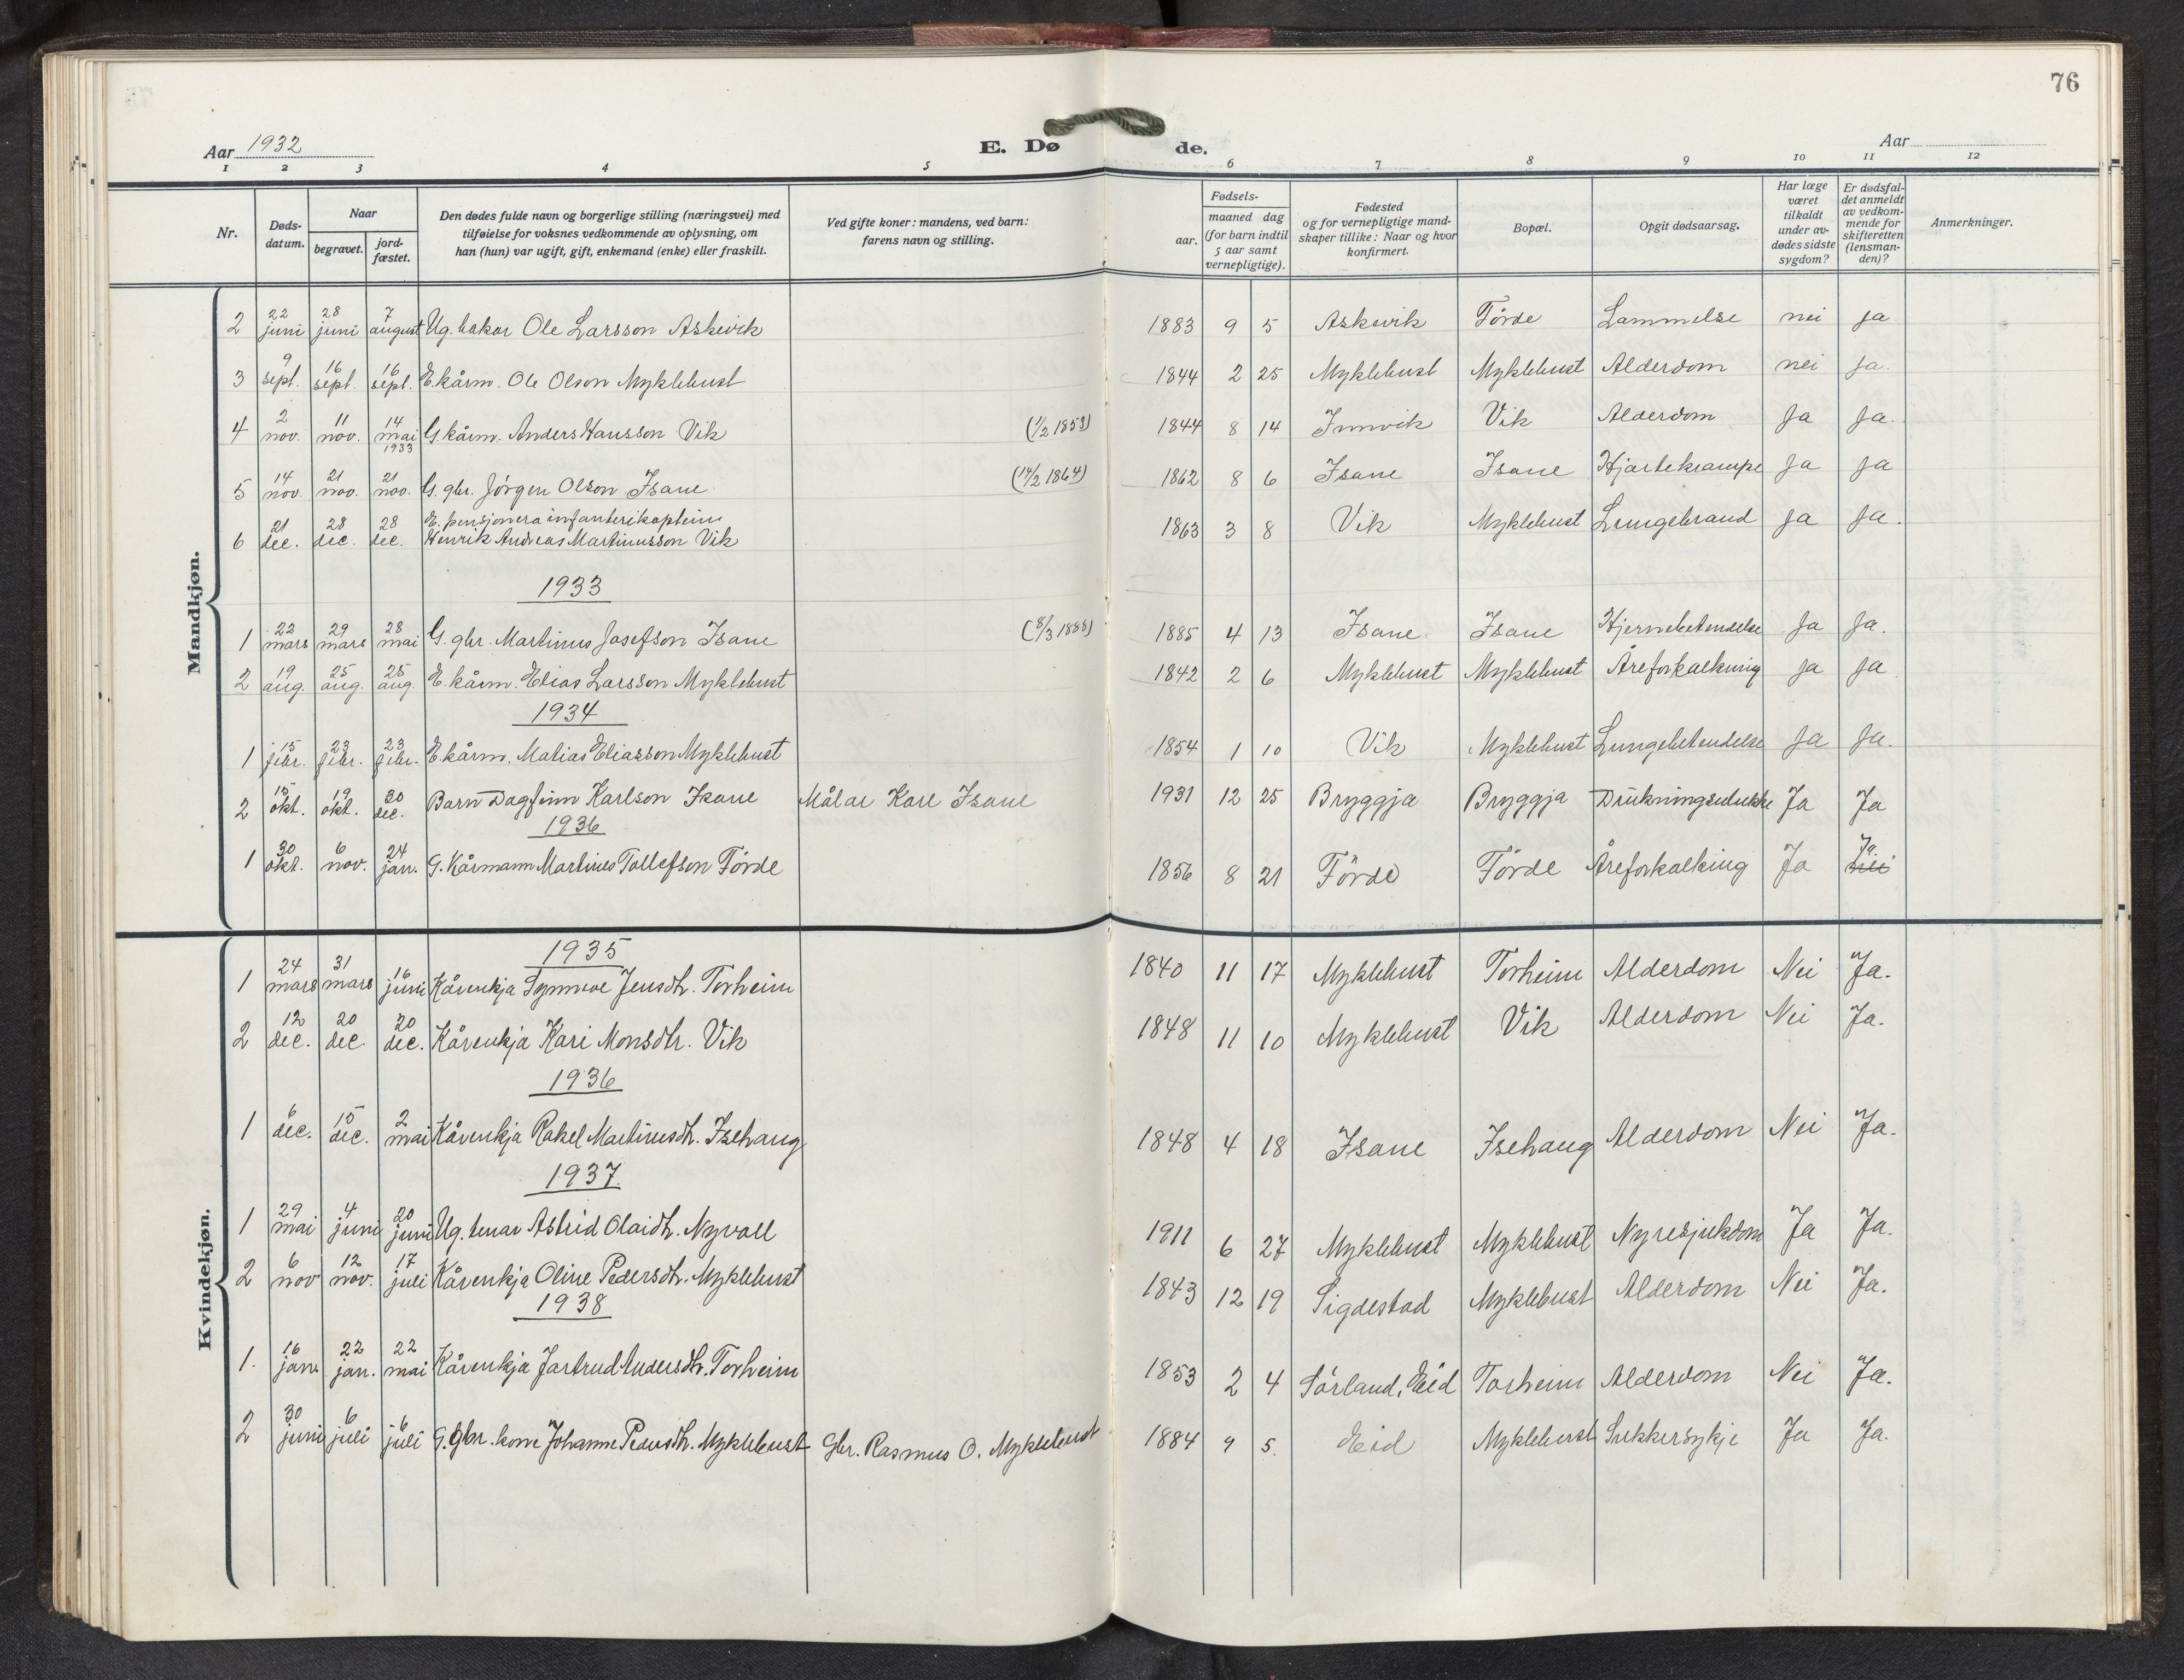 76
Aar 1932
E. Døde.
Aar
1 2 3 4 5 6 7 8 9 10 11 12
Nr. Døds-datum. Naar begravet. jord-fæstet. Den dødes fulde navn og borgerlige stilling (næringsvei) med tilføielse for voksnes vedkommende av oplysning, om han (hun) var ugift, gift, enkemand (enke) eller fraskilt. Ved gifte koner: mandens, ved barn: farens navn og stilling. Fødsels- aar. maaned dag (for barn indtil 5 aar samt vernepligtige). Fødested og for vernepligtige mandskaper tillike: Naar og hvor konfirmert. Bopæl. Opgit dødsaarsag. Har læge været tilkaldt under avdødes sidste sygdom? Er dødsfaldet anmeldt av vedkommende for skifteretten (lensmanden)? Anmerkninger.
Mandkjøn.
2 22 juni 28 juni 7 august Ug. bakar Ole Larsson Askevik 1883 9 5 Askevik Förde Lammelse nei ja
3 9 sept. 16 sept. 16 sept. E. kårm. Ole Olson Myklebust 1844 2 25 Myklebust Myklebust Alderdom nei ja.
4 2 nov. 11 nov. 14 mai 1933 G. kårm. Anders Hansson Vik (1/2 1853) 1844 8 14 Innvik Vik Alderdom Ja Ja.
5 14 nov. 21 nov. 21 nov. G. gbr. Jørgen Olson Isane (14/2 1864) 1862 8 6 Isane Isane Hjartekrampe Ja Ja
6 21 dec. 28 dec. 28 dec. E. pensjonera infanterikaptein Henrik Andreas Martinusson Vik 1863 3 8 Vik Myklebust Lungebrand Ja Ja.
1933
1 22 mars 29 mars 28 mai G. gbr. Martinus Josefson Isane (8/3 1888) 1885 4 13 Isane Isane Hjernebetendelse Ja Ja.
2 19 aug. 25 aug. 25 aug. E. kårm. Elias Larsson Myklebust 1842 2 6 Myklebust Myklebust Åreforkalkning Ja Ja
1934
1 15 febr. 23 febr. 23 febr. E. kårm. Matias Eliasson Myklebust 1854 1 10 Vik Myklebust Lungebetendelse Ja Ja.
2 15 okt. 19 okt. 30 dec. Barn Dagfinn Karlson Isane Målar Karl Isane 1931 12 25 Bryggja Bryggja Drukningsulukke Ja Ja
1936
1 30 okt. 6 nov. 24 jan. G. Kårmann Martinus Tollefson Förde 1856 8 21 Förde Förde Åreforkalking Ja Ja. nei
Kvindekjøn.
1935
1 24 mars 31 mars 16 juni Kårenkja Synnøve Jensdtr. Torheim 1840 11 17 Myklebust Torheim Alderdom Nei Ja.
2 12 dec. 20 dec. 20 dec. Kårenkja Kari Monsdtr. Vik 1848 11 10 Myklebust Vik Alderdom Nei Ja.
1936
1 6 dec. 15 dec. 2 mai Kårenkja Rakel Martinusdtr. Isehaug 1848 4 18 Isane Isehaug Alderdom Nei Ja.
1937
1 29 mai 4 juni 20 juni Ug. tenar Astrid Olaidtr. Nyvoll 1911 6 27 Myklebust Myklebust Nyresjukdom Ja Ja.
2 6 nov 12 nov. 17 juli Kårenkja Oline Pedersdtr. Myklebust 1843 12 19 Sigdestad Myklebust Alderdom Nei Ja.
1938
1. 16 jan. 22 jan. 22 mai Kårenkja Jartrud Andersdtr. Torheim 1853 2 4 Sörland, Eid Torheim Alderdom Nei Ja.
2 30 juni 6 juli 6 juli G. gbr. kone Johanne Pedersdtr. Myklebust Gbr. Rasmus O. Myklebust 1884 9 5. Eid Myklebust Sukkersykje Ja Ja.